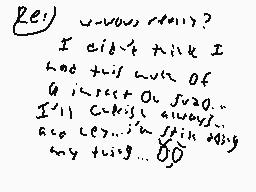 Re:
I didn't think I
had this much of
a impact on sudo..
I'll cherish always...
and hey...i'm still doing
my thing... OO